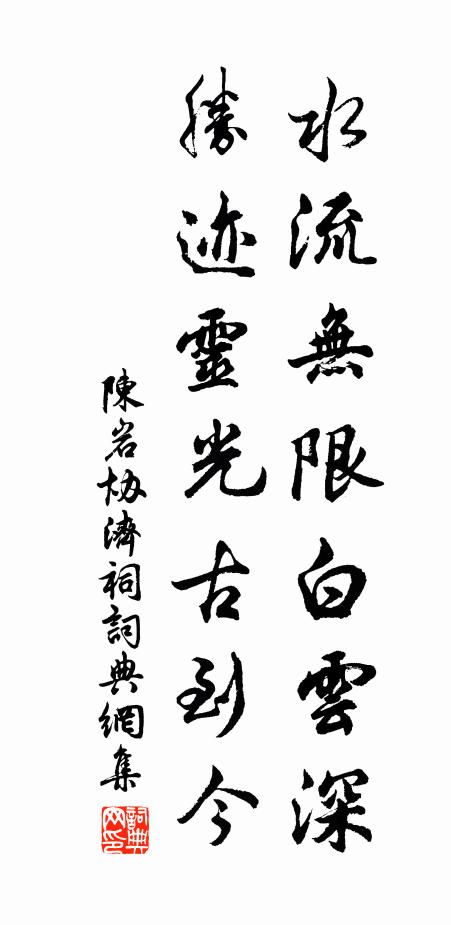 水流無限白雲深
勝迹靈光古到今
陳岩協濟祠詞典網集
詞典网印